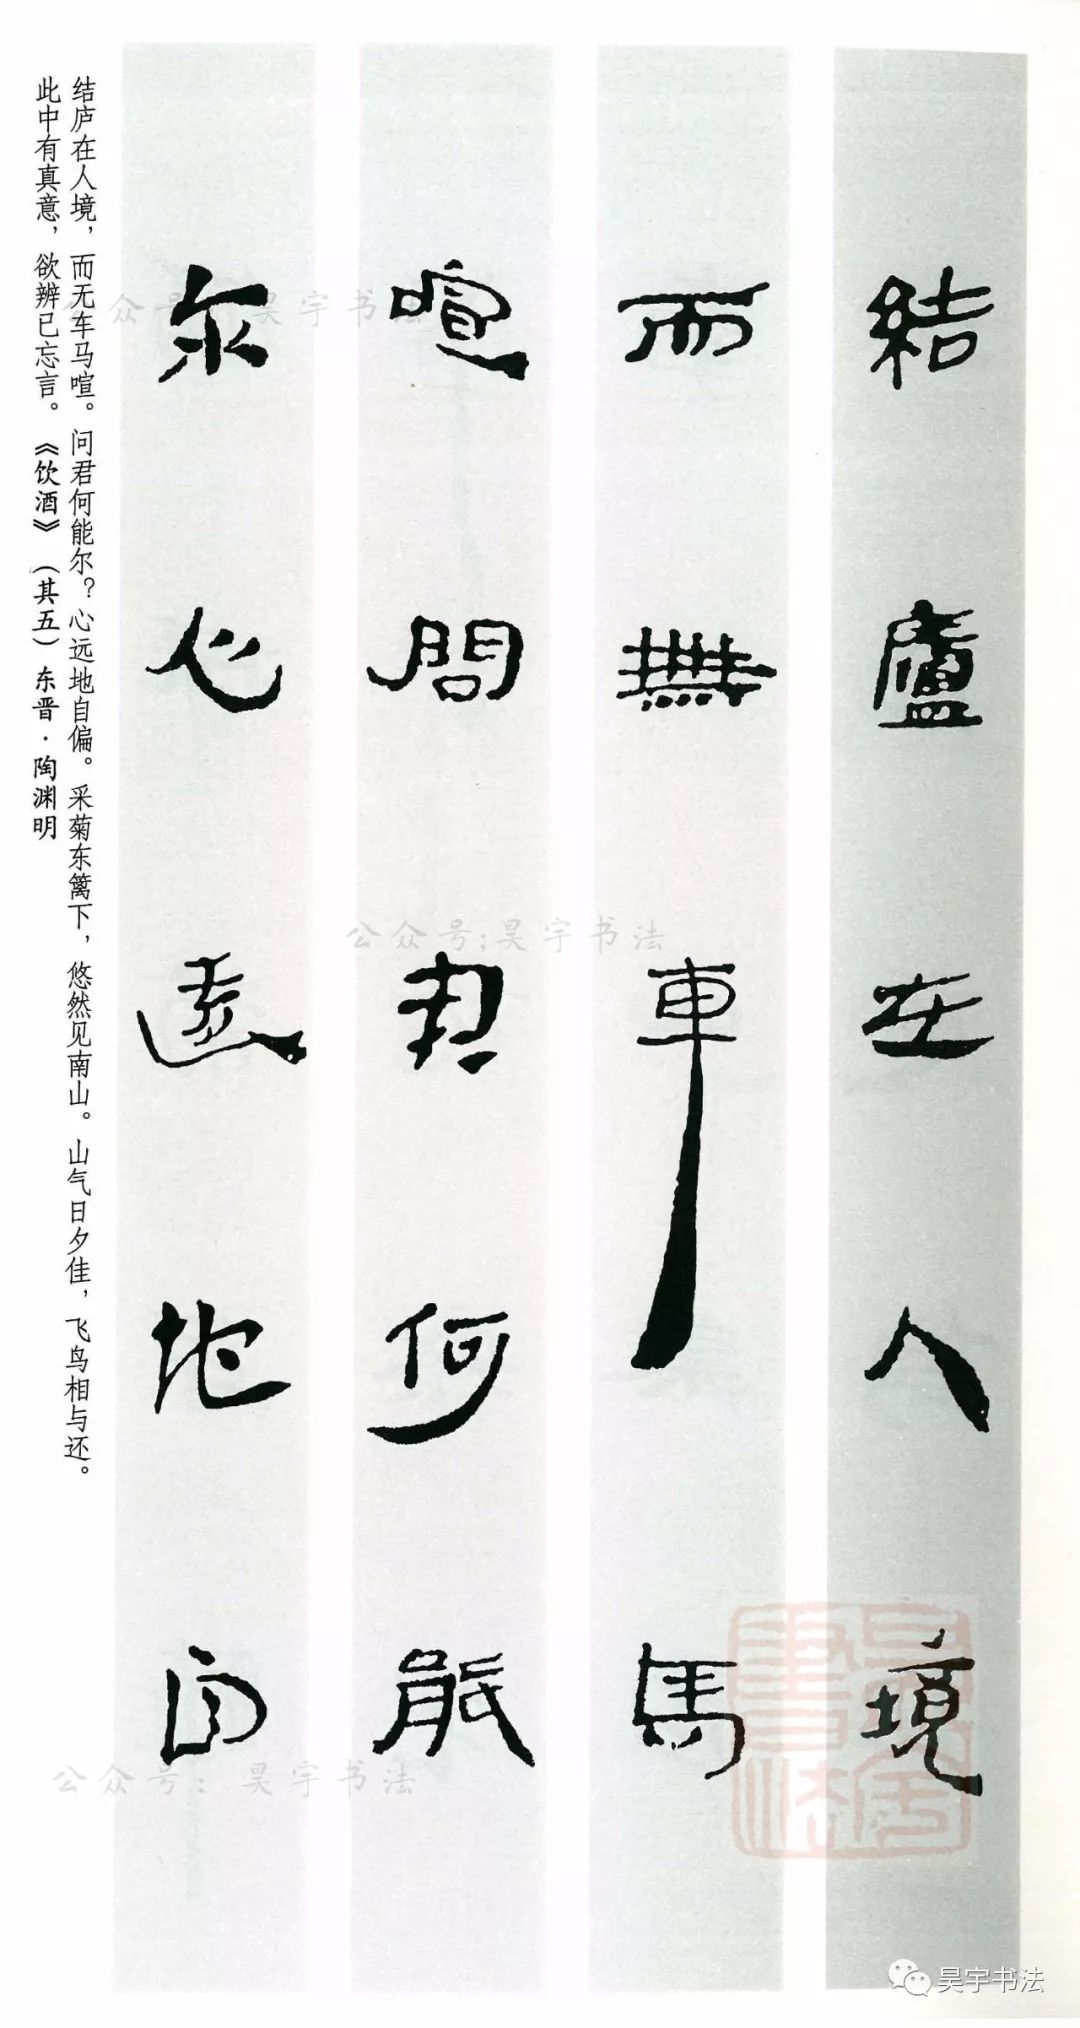 結廬在人境
而無車馬
喧問君何能
尔心遠地自
结庐在人境，而无车马喧。问君何能尔？心远地自偏。采菊东篱下，悠然见南山。山气日夕佳，飞鸟相与还。
此中有真意，欲辨已忘言。《饮酒》（其五）东晋·陶渊明
公众号：昊宇书法
公众号:昊宇书法
公众号：昊宇书法
昊宇书法
昊宇书法